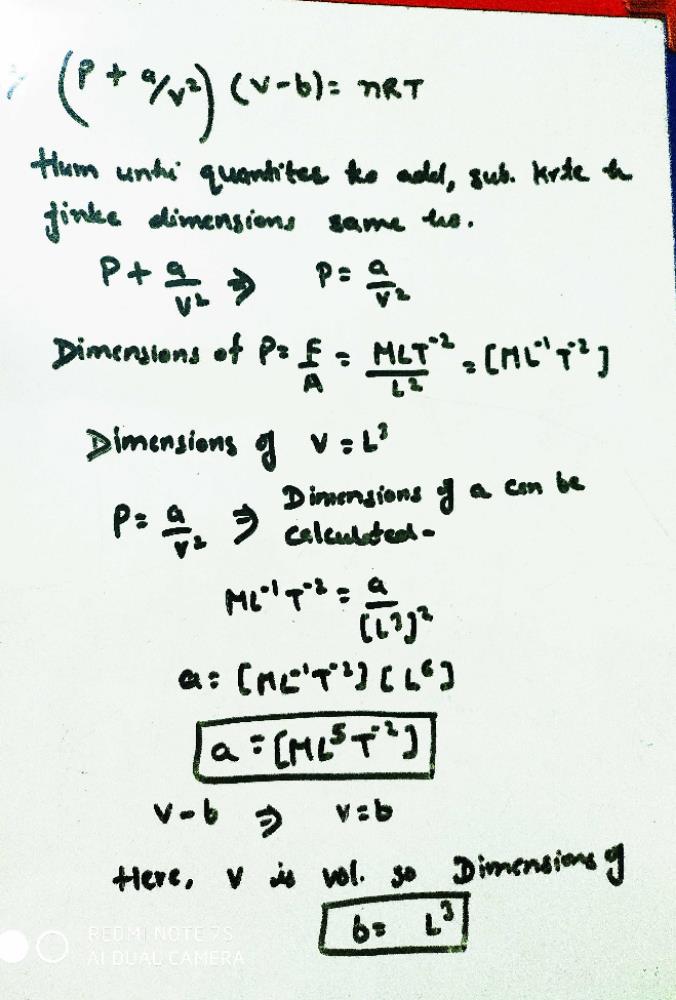 (P + a/v²) (v-b) = nRT
Hum unhi quantites ko add, sub. krte h
jinke dimensions same ho.
P + a/v² ⇒ P = a/v²
Dimensions of P = F/A = MLT⁻²/L² = [ML⁻¹T⁻²]
Dimensions of v = L³
P = a/v² ⇒ Dimensions of a can be
calculated-
ML⁻¹T⁻² = a/[L³]²
a = [ML⁻¹T⁻²] [L⁶]
a = [ML⁵T⁻²]
v-b ⇒ v=b
Here, v is vol. so Dimensions of
b = L³
REDMI NOTE 7S
AI DUAL CAMERA